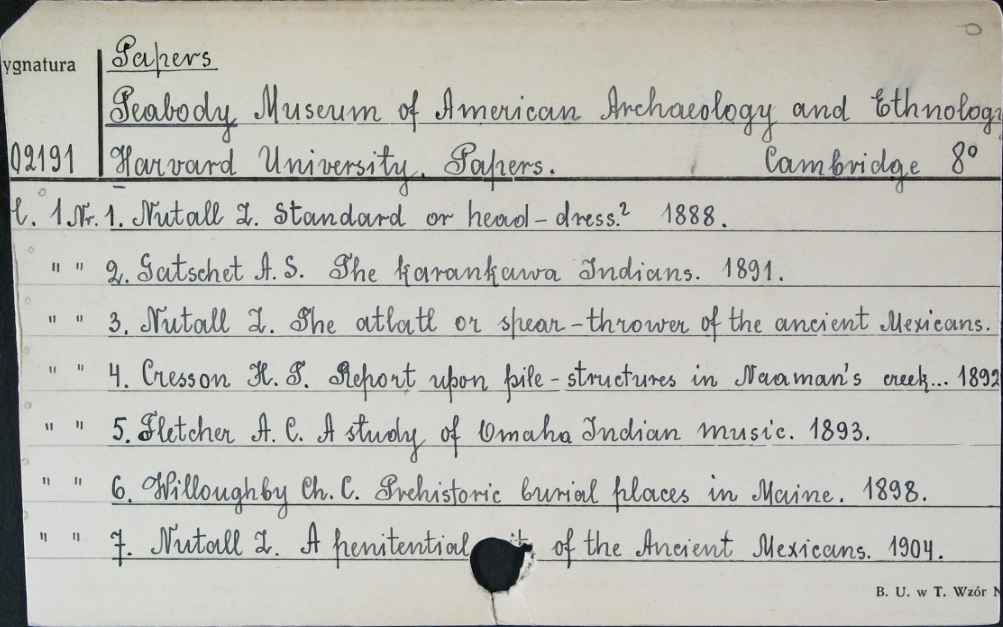 Papers
ygnatura
Peabody Museum of American Archaeology and Ethnology
02191 Harvard University. Papers. Cambridge 8°
t. 1 Nr. 1. Nutall Z. Standard or head-dress.² 1888.
" " 2. Gatschet A. S. The Karankawa Indians. 1891.
" " 3. Nutall Z. The atlatl or spear-thrower of the ancient Mexicans.
" " 4. Cresson H. T. Report upon pile-structures in Naaman's creek... 1892
" " 5. Fletcher A. C. A study of Omaha Indian music. 1893.
" " 6. Willoughby Ch. C. Prehistoric burial places in Maine. 1898.
" " 7. Nutall Z. A penitential of the Ancient Mexicans. 1904.
B. U. w T. Wzór N